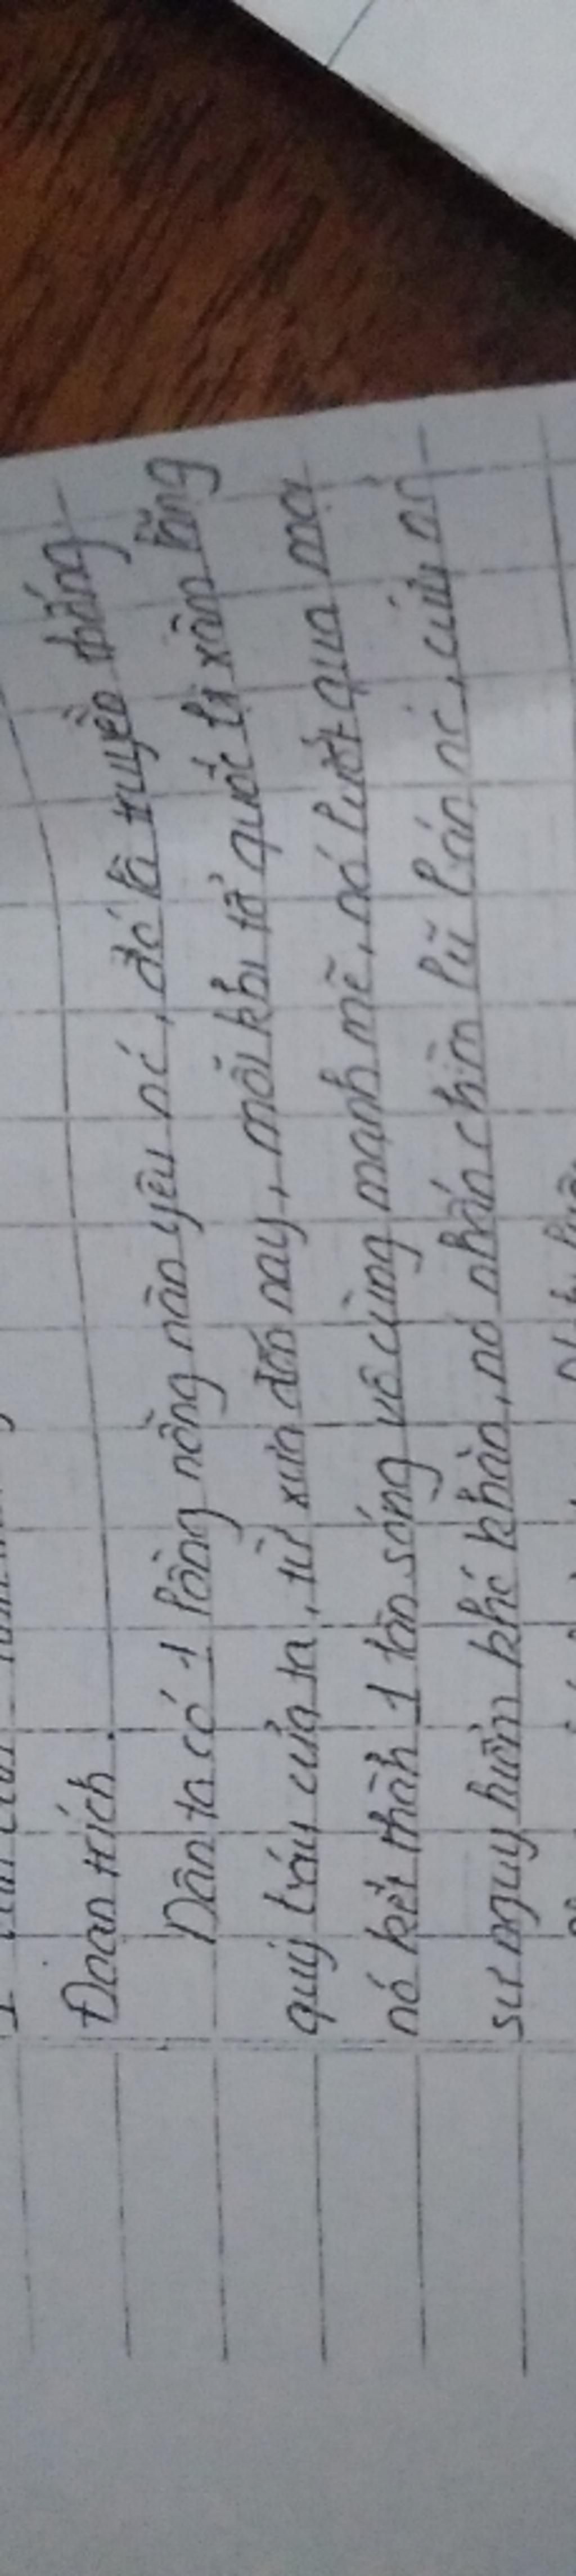 Đoạn trích
Dân ta có 1 lòng nồng nàn yêu nć, đó là truyền thống
quý báu của ta, từ xưa đến nay, mỗi khi tổ quốc bị xâm lăng
nó kết thành 1 làn sóng vô cùng mạnh mẽ, nó lướt qua mọi
sự nguy hiểm khó khăn, nó nhấn chìm lũ bán nć, cướp nć